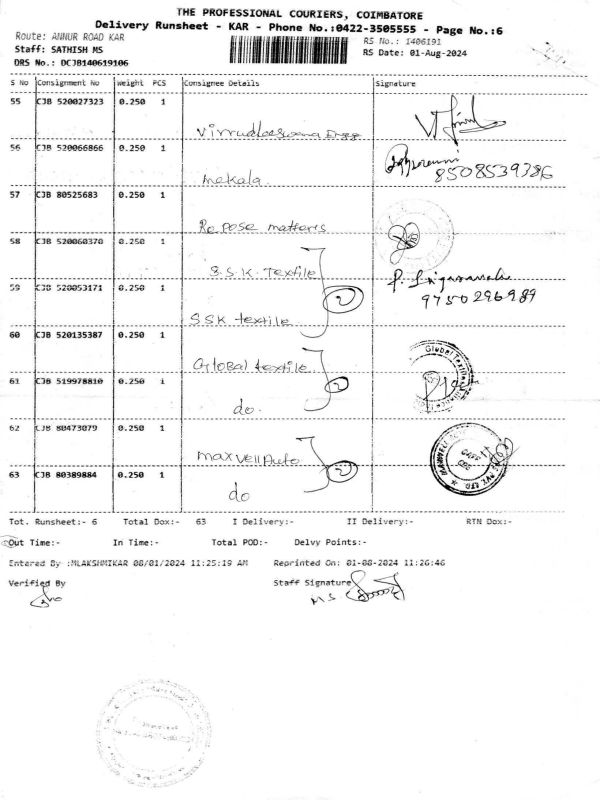 THE PROFESSIONAL COURIERS, COIMBATORE
Delivery Runsheet - KAR - Phone No.:0422-3505555 - Page No.:6
Route: ANNUR ROAD KAR
RS No.: 1406191
Staff: SATHISH MS
RS Date: 01-Aug-2024
DRS No.: DCJB140619106
S No Consignment No Weight PCS Consignee Details Signature
55 CJB 520027323 0.250 1
56 CJB 520066866 0.250 1
mekala 8508539386
57 CJB 80525683 0.250 1
Repose matteris
58 CJB 520060370 0.250 1
S.S.K. Textile
59 CJB 520053171 0.250 1 2
9750296989
SSK textile
60 CJB 520135387 0.250 1
Global textile
61 CJB 519978810 0.250 1 2
do.
62 CJB 80473079 0.250 1
Maxvell Auto
63 CJB 80389884 0.250 1 2
do
Tot. Runsheet:- 6 Total Dox:- 63 I Delivery:- II Delivery:- RTN Dox:-
Out Time:- In Time:- Total POD:- Delvy Points:-
Entered By :MLAKSHMIKAR 08/01/2024 11:25:19 AM Reprinted On: 01-08-2024 11:26:46
Verified By Staff Signature
M S